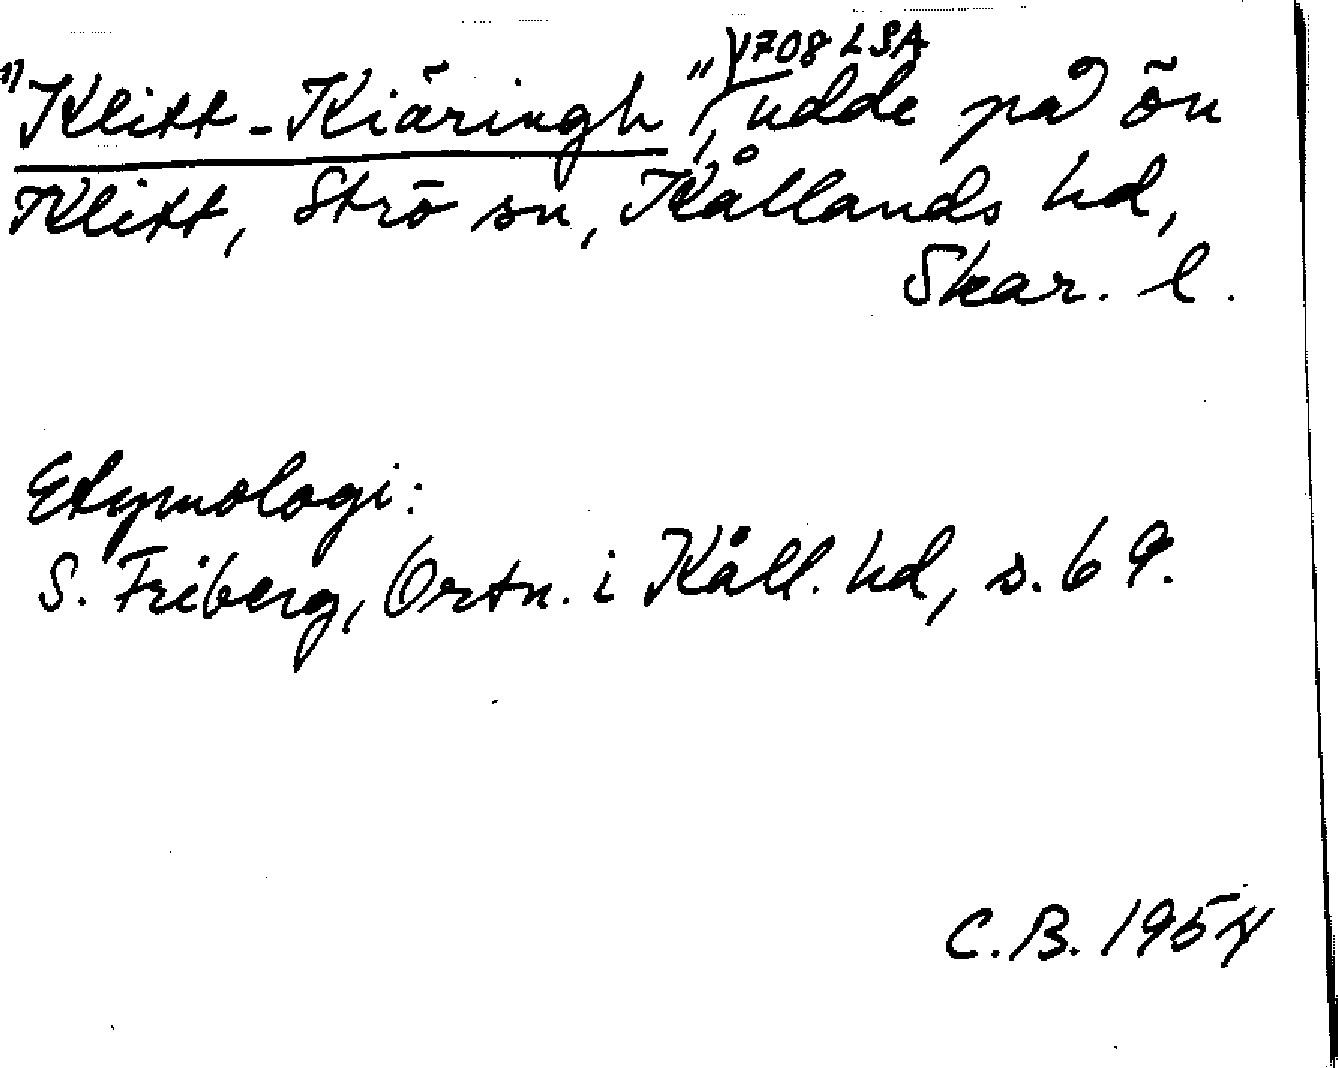 "Klitt-Kiäringh", 1708 LSA, udde på ön
Klitt, Strö sn, Kållands hd,
Skar. l.
Etymologi:
S. Friberg, Ortn. i Kåll. hd, s. 69.
C.B. 1954